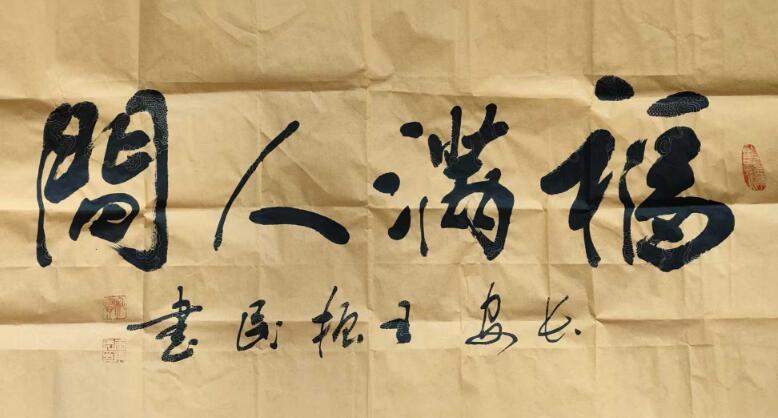 福滿人間
长安王振民書